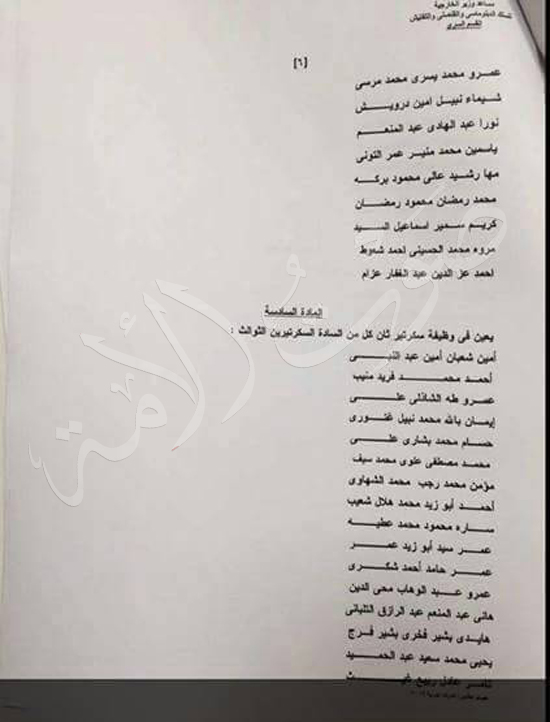 مساعد وزير الخارجية
للسلك الدبلوماسى والقنصلى والتفتيش
القسم السرى
[٦]
عمـرو محمد يسرى محمد مرسى
شيماء نبيـل امين درويـش
نورا عبد الهادى عبد المنعـم
ياسمين محمد منيـر عمر التونى
مها رشـيد عالى محمود بركـه
محمد رمضان محمود رمضـان
كريـم سـمير اسماعيل السـيد
مروه محمد الحسينى احمد شعوط
احمد عز الدين عبد الغفار عزام
المادة السادسة
يعين فى وظيفة سكرتير ثان كل من السادة السكرتيرين الثوالث :
أمين شعبان أمين عبد النبـى
أحمـد محمـد فريد منيب
عمـرو طه الشاذلى علـى
إيمـان بالله محمد نبيل غنـورى
حسـام محمد بشارى علـى
محمـد مصطفى علوى محمد سيف
مؤمن محمد رجب محمد الشهاوى
أحمـد أبو زيد محمد هلال شعيب
سـاره محمود محمد عطيـه
عمـر سيد أبو زيد عمـر
عمـر حامد أحمد شكـرى
عمرو عبـد الوهاب محى الدين
هانى عبد المنعم عبد الرازق التلبانى
هايدى بشير فخرى بشير فـرج
يحيى محمد سعيد عبد الحميـد
تامـر عادل ربيع غيـث
صوت الأمة